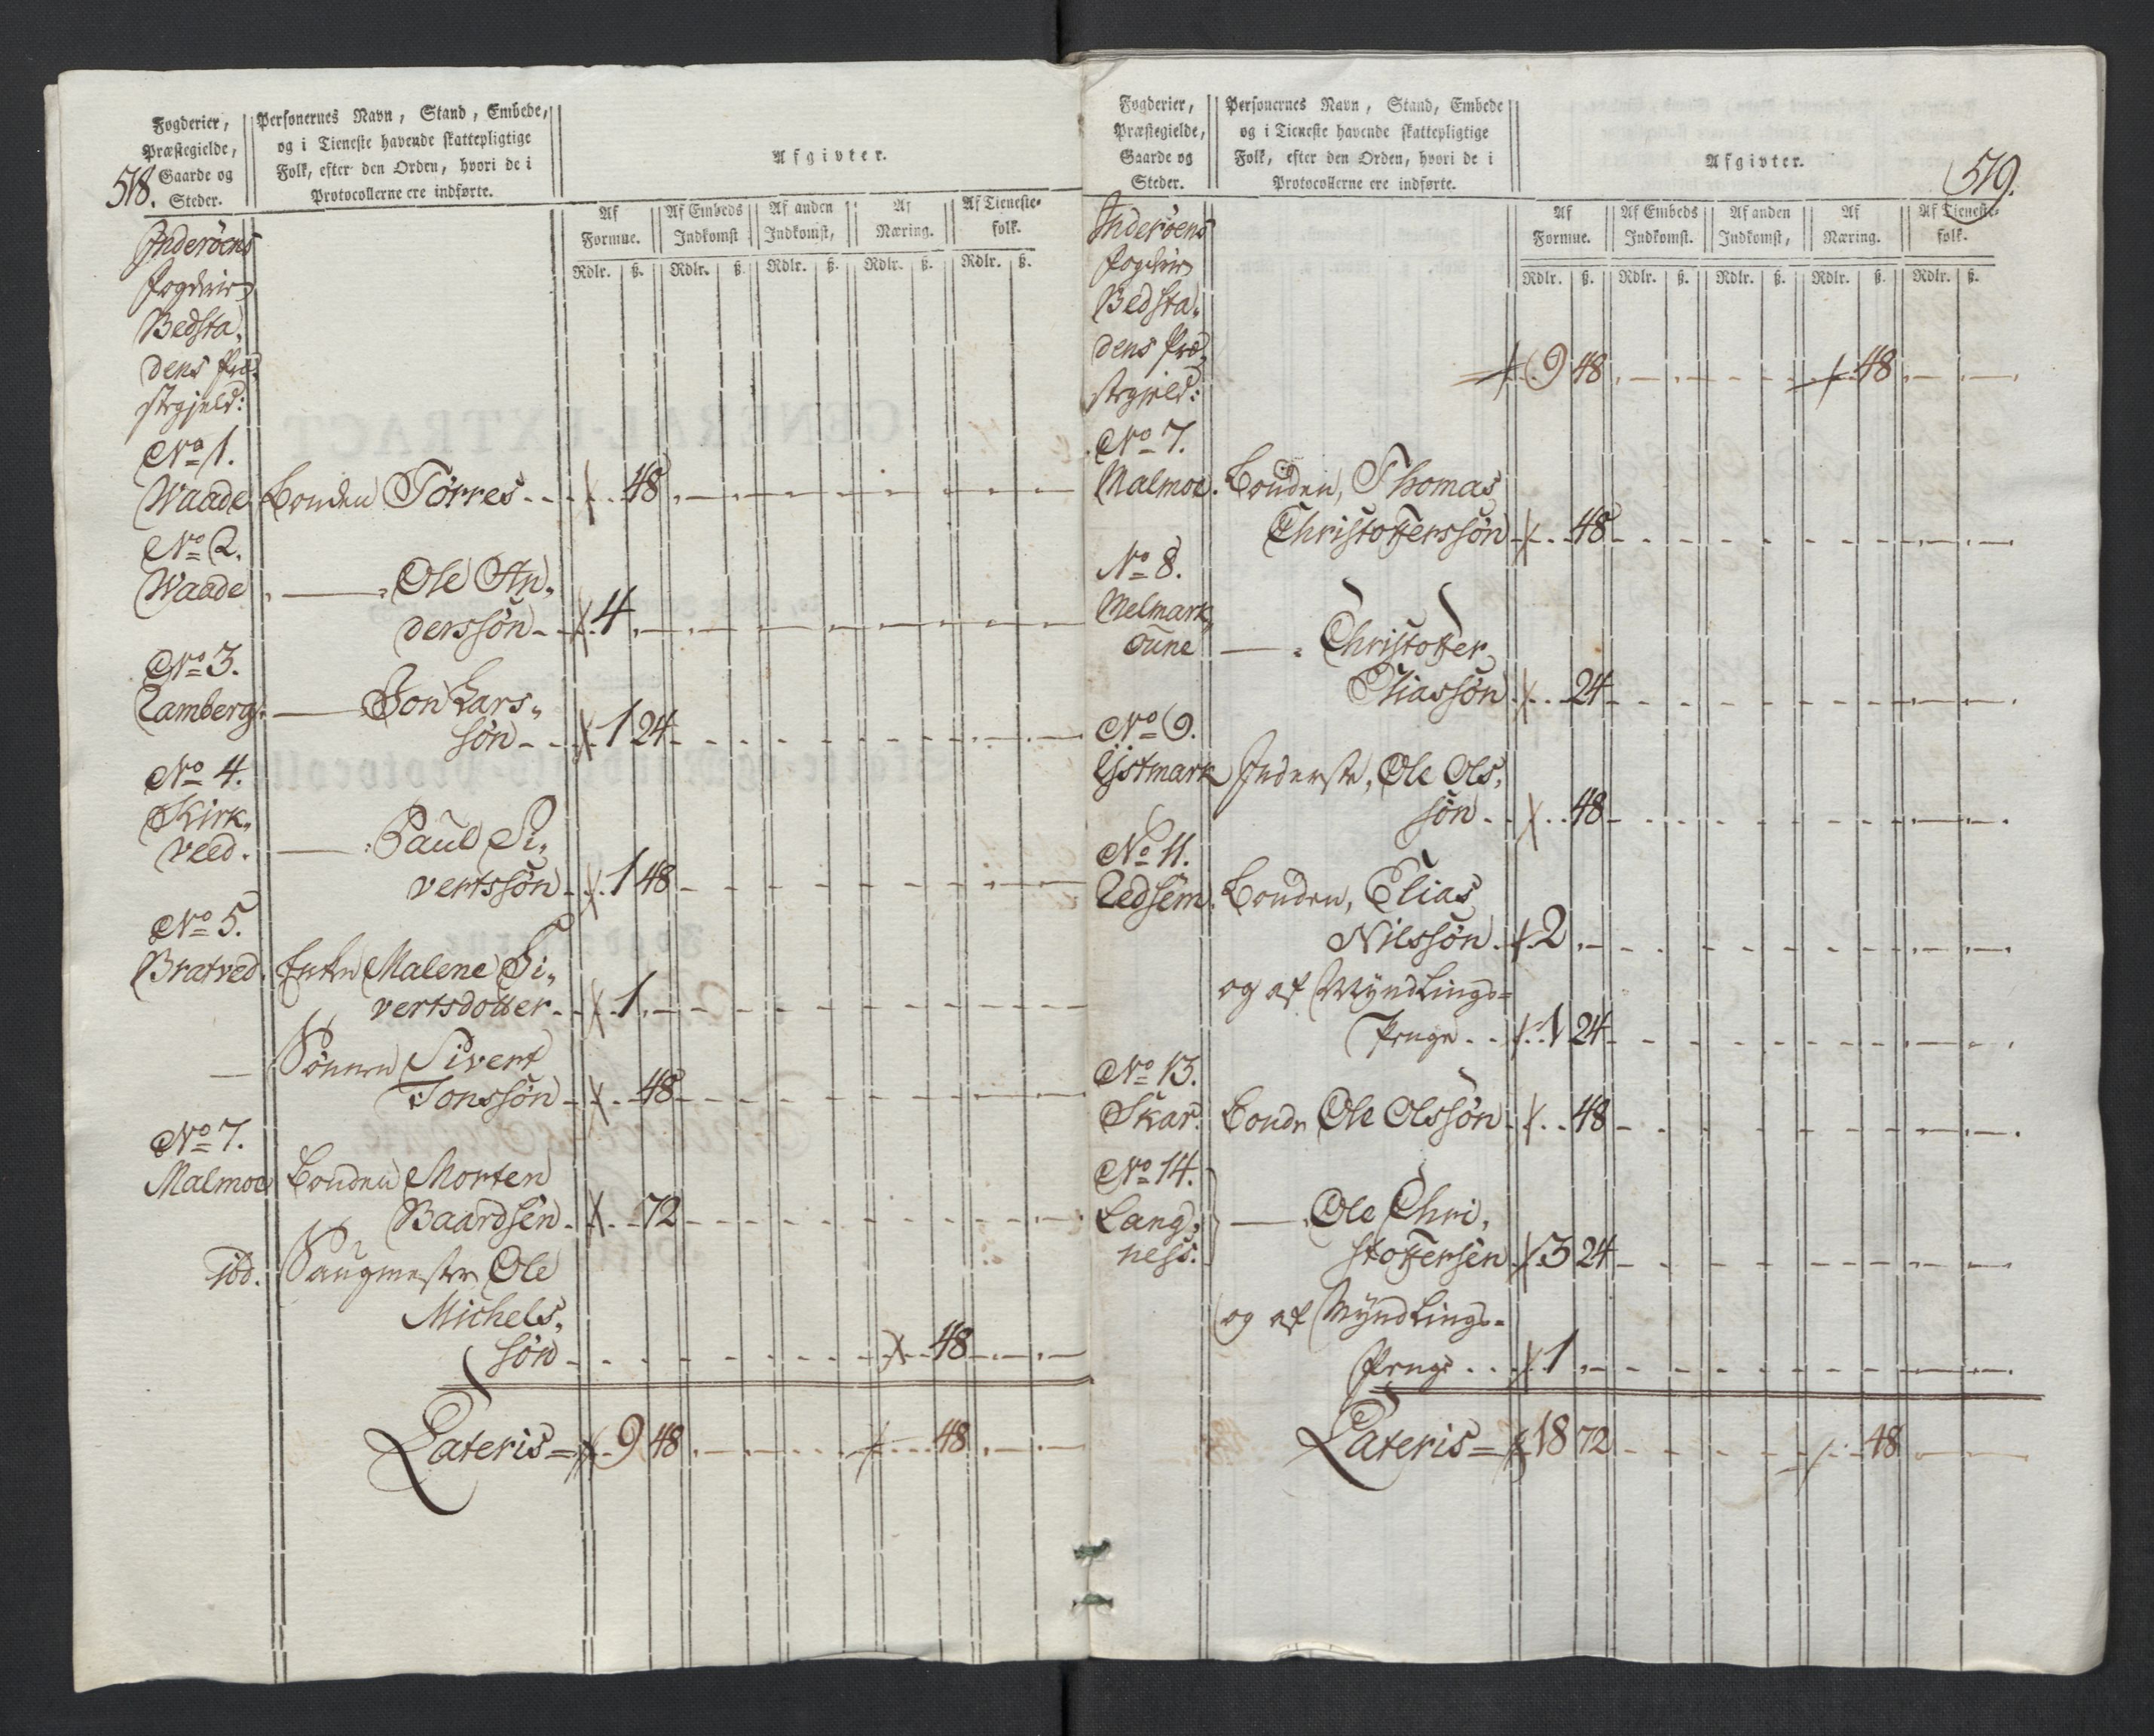 518.
Fogderier,
Præstegielde,
Gaarde og
Steder.
Personernes Navn, Stand, Embede,
og i Tieneste havende skattepligtige
Folk, efter den Orden, hvori de i
Protocollerne ere indførte.
Afgivter.
Af Formue.
Af Embeds Indkomst
Af anden Indkomst,
Af Næring.
Af Tieneste-folk.
Rdlr. ß. Rdlr. ß. Rdlr. ß. Rdlr. ß. Rdlr. ß.
Inderöens
Fogderie
Bedsta„
dens Præ„
stegjeld:
No 1.
Waade Bonden Törres 48
No 2.
Waade Ole An„
derssön 4
No 3.
Lamberg. Jon Lars„
sön 1 24
No 4.
Kirk„
veed. Paul Si„
vertssön 1 48
No 5.
Bratved. Enken Malene Si„
vertsdotter 1
Sönnen Sivert
Jonssön 48
No 7.
Malmoe Bonden Morten
Baardsen 72
ibd. Saugmester Ole
Michels„
sön 48
Lateris 9 48 48
519.
Fogderier,
Præstegielde,
Gaarde og
Steder.
Personernes Navn, Stand, Embede
og i Tieneste havende skattepligtige
Folk, efter den Orden, hvori de i
Protocollerne ere indførte.
Afgivter.
Af Formue.
Af Embeds Indkomst.
Af anden Indkomst,
Af Næring.
Af Tieneste-folk.
Rdlr. ß. Rdlr. ß. Rdlr. ß. Rdlr. ß. Rdlr. ß.
Inderöens
Fogderie
Bedsta„
dens Præ„
stegjeld: 9 48 48
No 7.
Malmoe. Bonden, Thomas
Christofferssön 48
No 8.
Melmark„
oune Christoffer
Eliassön 24
No 9.
Gjstmark Inderste, Ole Ols„
sön 48
No 11.
Ledsem. Bonden, Elias
Nilssön 2
og af Myndlings=
Penge 1 24
No 13.
Skar. Bonden Ole Olssön 48
No 14.
Lang„
ness. Ole Chri„
stoffersen 3 24
og af Myndlings=
Penge 1
Lateris 18 72 48